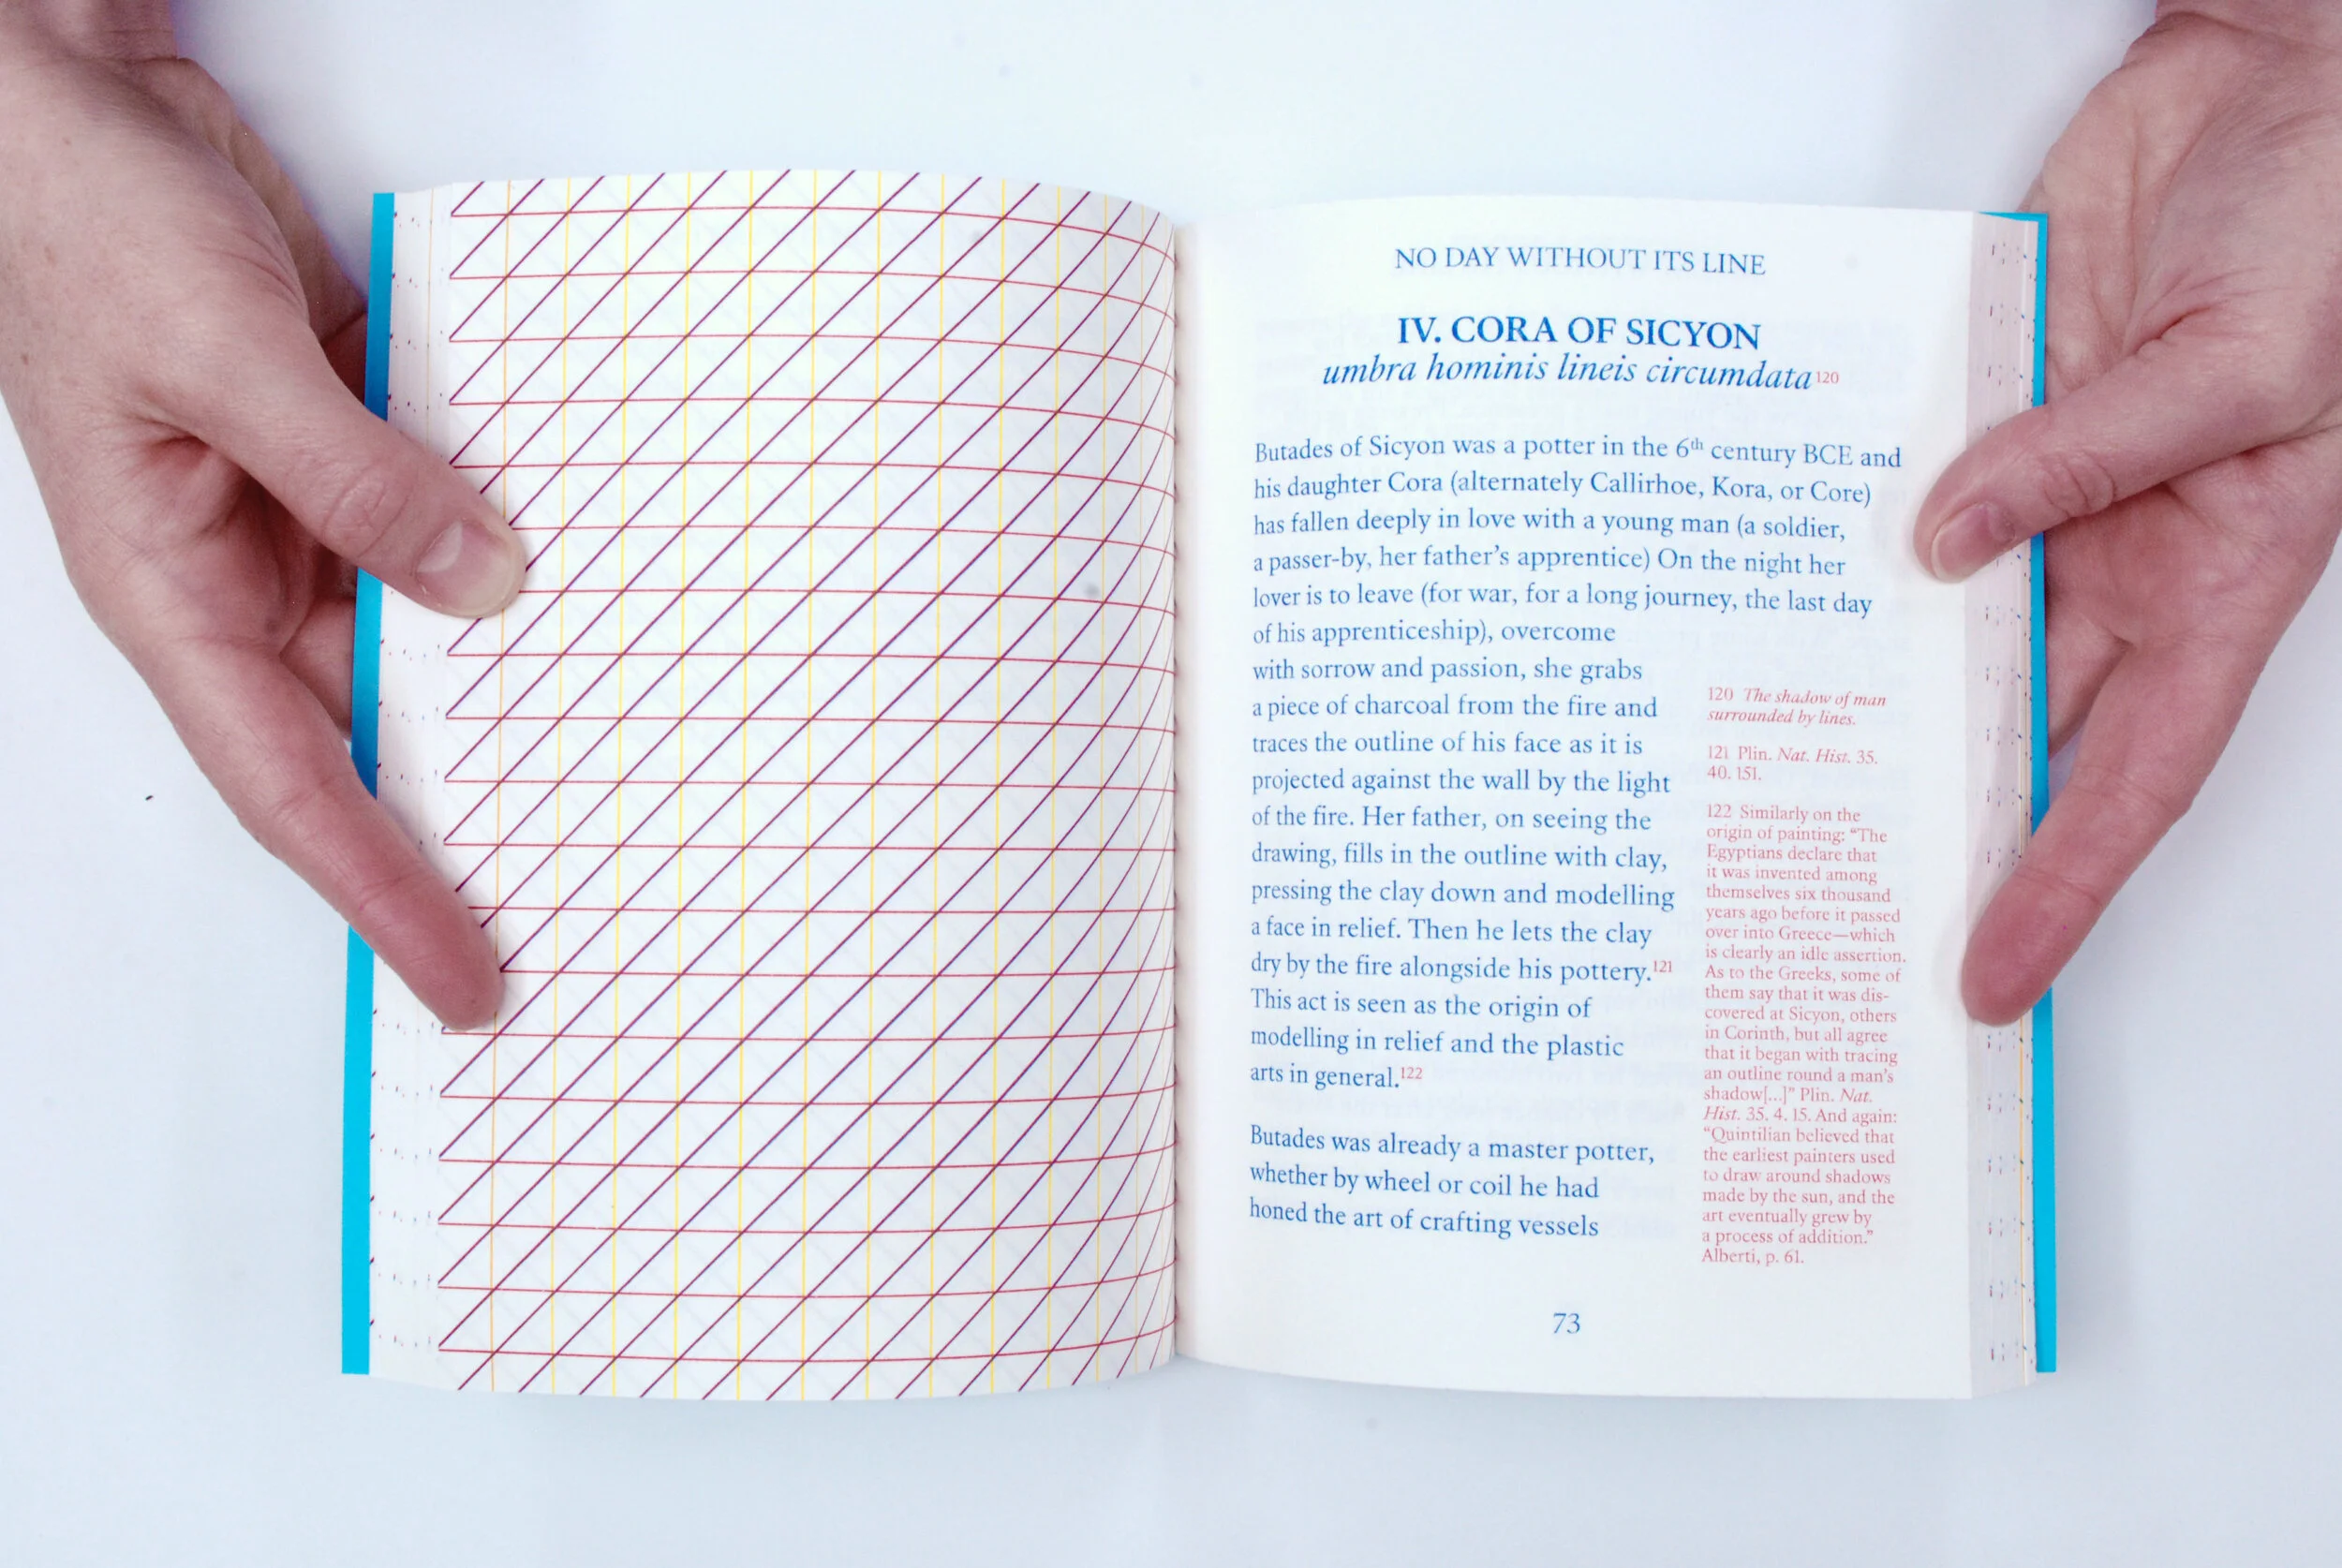 NO DAY WITHOUT ITS LINE
IV. CORA OF SICYON
umbra hominis lineis circumdata120
Butades of Sicyon was a potter in the 6th century BCE and
his daughter Cora (alternately Callirhoe, Kora, or Core)
has fallen deeply in love with a young man (a soldier,
a passer-by, her father's apprentice) On the night her
lover is to leave (for war, for a long journey, the last day
of his apprenticeship), overcome
with sorrow and passion, she grabs
a piece of charcoal from the fire and
traces the outline of his face as it is
projected against the wall by the light
of the fire. Her father, on seeing the
drawing, fills in the outline with clay,
pressing the clay down and modelling
a face in relief. Then he lets the clay
dry by the fire alongside his pottery.121
This act is seen as the origin of
modelling in relief and the plastic
arts in general.122
Butades was already a master potter,
whether by wheel or coil he had
honed the art of crafting vessels
120 The shadow of man
surrounded by lines.
121 Plin. Nat. Hist. 35.
40. 151.
122 Similarly on the
origin of painting: "The
Egyptians declare that
it was invented among
themselves six thousand
years ago before it passed
over into Greece—which
is clearly an idle assertion.
As to the Greeks, some of
them say that it was dis-
covered at Sicyon, others
in Corinth, but all agree
that it began with tracing
an outline round a man's
shadow[...]" Plin. Nat.
Hist. 35. 4. 15. And again:
"Quintilian believed that
the earliest painters used
to draw around shadows
made by the sun, and the
art eventually grew by
a process of addition."
Alberti, p. 61.
73